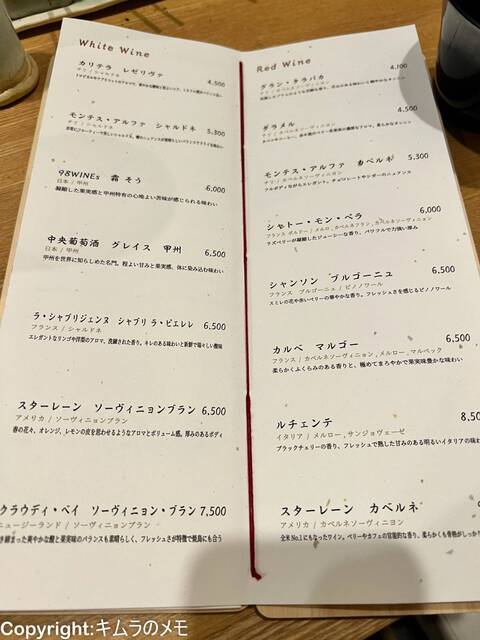 White Wine
カリテラ レゼリヴァ 4,500
チリ / シャルドネ
モンテス・アルファ シャルドネ 5,300
チリ / シャルドネ
98WINEs 霜 そう 6,000
日本 / 甲州
凝縮した果実感と甲州特有の心地よい苦味が感じられる味わい
中央葡萄酒 グレイス 甲州 6,500
日本 / 甲州
甲州を世界に知らしめた名門。程よい甘みと果実感、体に染み込む味わい
ラ・シャブリジェンヌ シャブリ ラ・ピエレレ 6,500
フランス / シャルドネ
エレガントなリンゴや洋梨のアロマ、洗練された香り。キレのある味わいと新鮮で瑞々しい酸味
スターレーン ソーヴィニョンブラン 6,500
アメリカ / ソーヴィニョンブラン
春の花々、オレンジ、レモンの皮を思わせるようなアロマとボリューム感。厚みのあるボディ
クラウディ・ベイ ソーヴィニョン・ブラン 7,500
ニュージーランド / ソーヴィニョンブラン
き締まった爽やかな酸と果実味のバランスも素晴らしく、フレッシュさが特徴で焼鳥にも合う
Red Wine
グラン・タラパカ 4,100
チリ / カベルネソーヴィニヨン
グラメル 4,500
モンテス・アルファ カベルネ 5,300
チリ / カベルネソーヴィニヨン
フルボディながらもエレガント。チョコレートやシガーのニュアンス
シャトー・モン・ペラ 6,000
フランス ボルドー / メルロ、カベルネフラン、カベルネソーヴィニヨン
ラズベリーが凝縮したジューシーな香り、パワフルで力強い厚み
シャンソン ブルゴーニュ 6,500
フランス ブルゴーニュ / ピノノワール
スミレの花や赤いベリーの華やかな香り。フレッシュさを感じるピノノワール
カルベ マルゴー 6,500
フランス / カベルネソーヴィニヨン、メルロー、マルベック
柔らかくふくらみのある香りと、極めてまろやかで果実味豊かな味わい
ルチェンテ 8,50
イタリア / メルロー、サンジョヴェーゼ
ブラックチェリーの香り、フレッシュで熟した甘みのある明るいイタリアの味わ
スターレーン カベルネ
アメリカ / カベルネソーヴィニヨン
全米No.1にもなったワイン。ベリーやカフェの官能的な香り、柔らかくも骨格がしっかり
Copyright:キムラのメモ